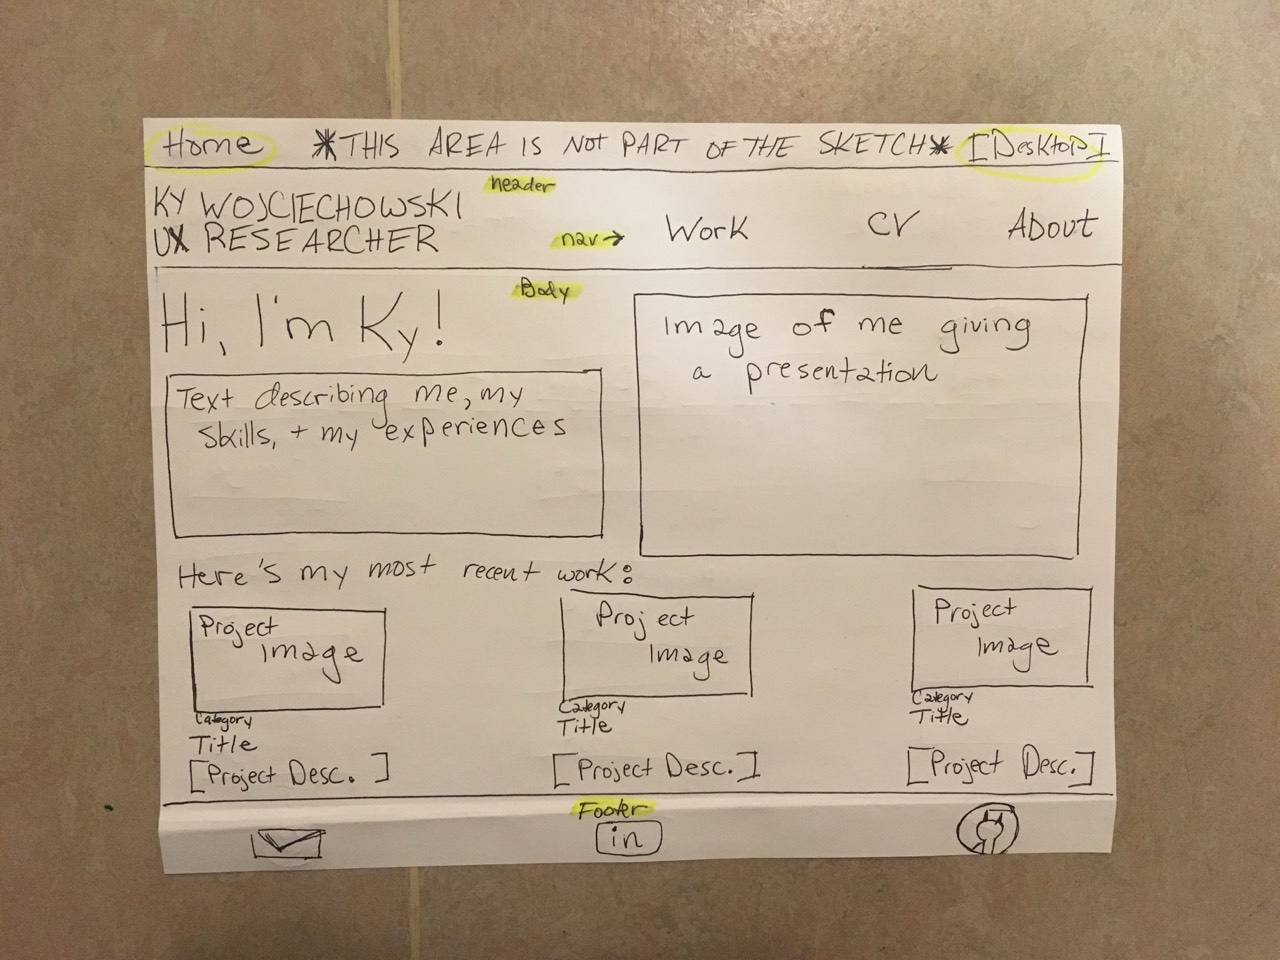 Home *THIS AREA IS NOT PART OF THE SKETCH* [Desktop]
header
KY WOJCIECHOWSKI
UX RESEARCHER
nav→ Work CV About
Body
Hi, I'm Ky!
Text describing me, my
skills, + my experiences
Image of me giving
a presentation
Here's my most recent work:
Project
Image
Category
Title
[Project Desc. ]
Project
Image
Category
Title
[Project Desc.]
Project
Image
Category
Title
[Project Desc.]
Footer
in